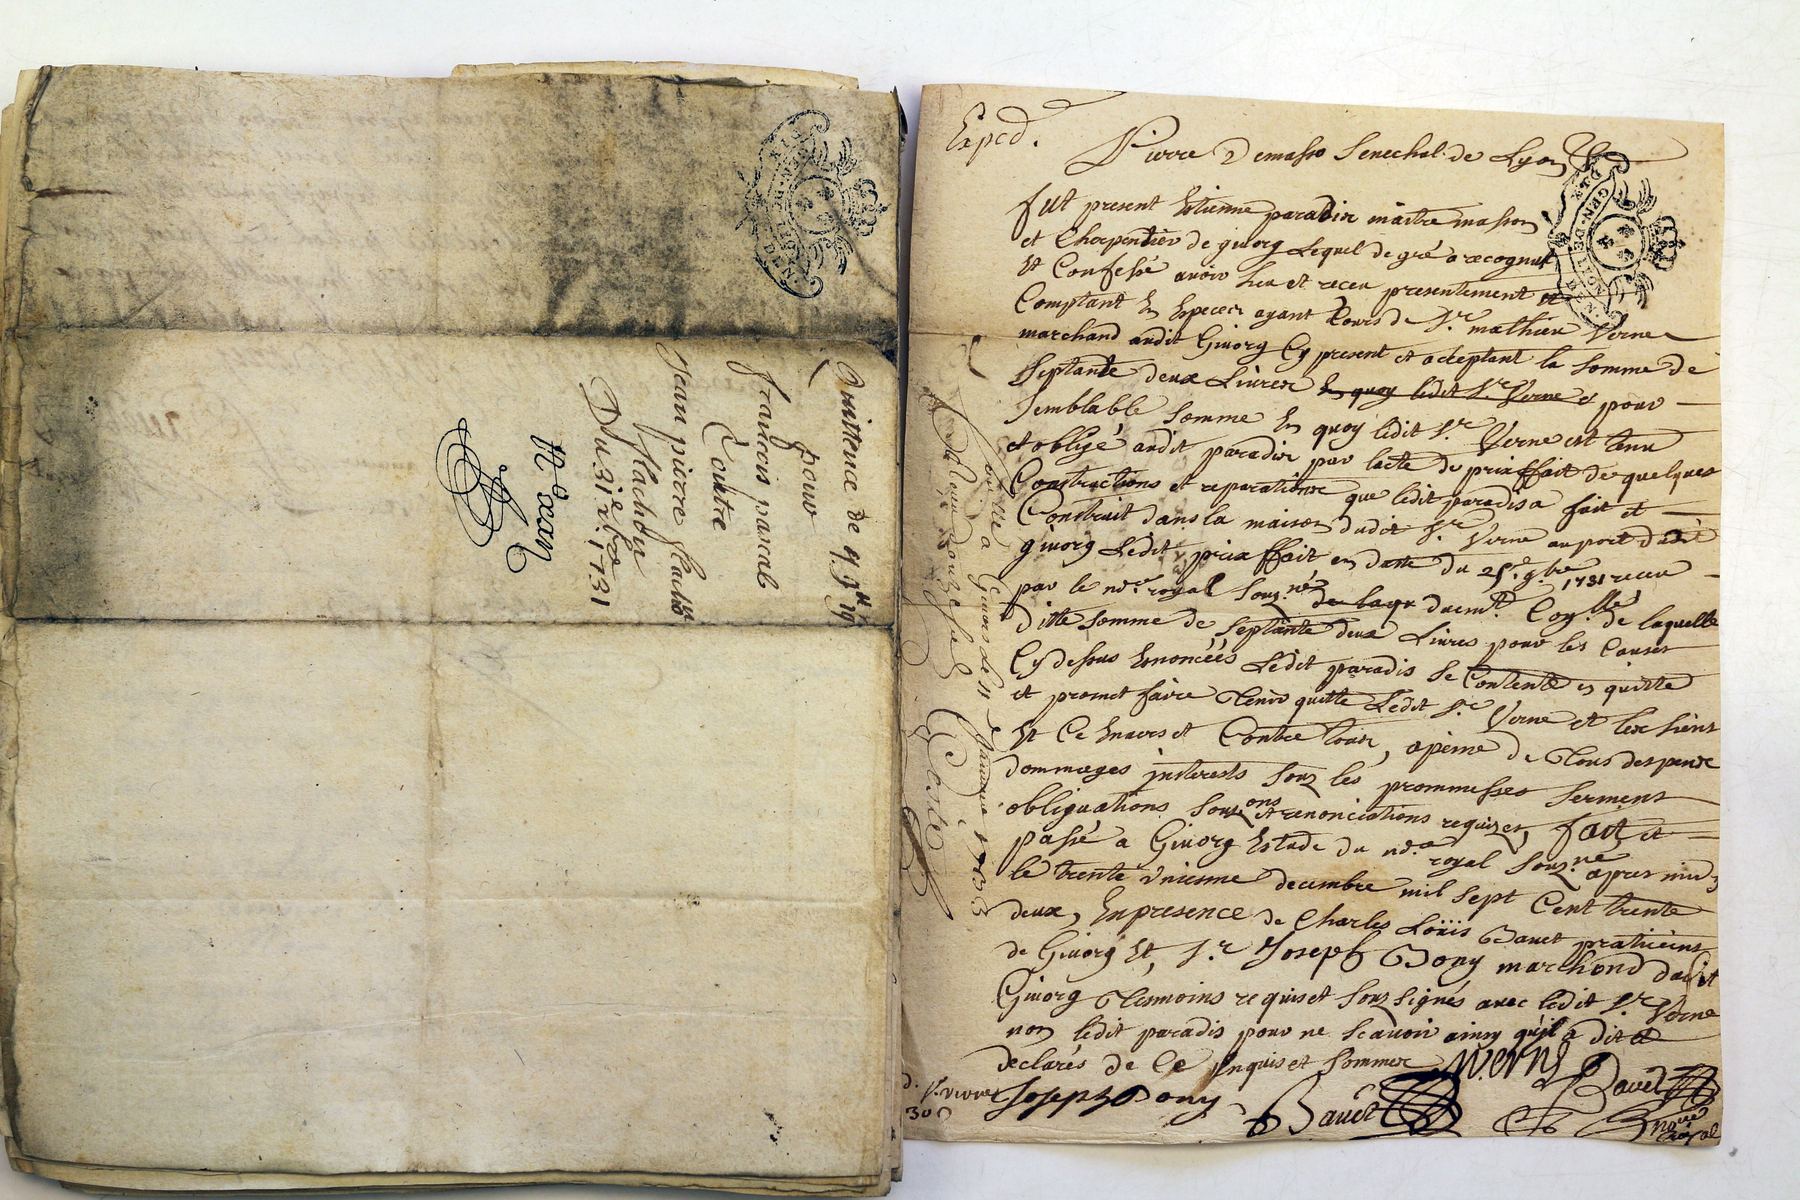 Quittance de
pour
françois pascal
Contre
Jean pierre flachat
flachat
Du 31 xbre 1731
GEN. DE
Exped.
Pierre Demasso Senechal de Lyon
fut present Estienne paradis maitre masson
et Charpentier de givorg Lequel de gré a recognut
Et Confessé avoir heu et receu presentement et
Comptant En Especes ayant Cours de Sr. mathieu Verne
marchand audit Givorg Cy present et acceptant la Somme de
Septante deux Livres En quoy ledit Sr. Verne et pour
Semblable Somme En quoy ledit Sr. Verne est tenu
et obligé audit paradis par lacte de prixffait de quelques
Constructions et reparations que ledit paradis a fait et
Construit dans la maison dudit Sr. Verne au port dudit
givorg Ledit prixffait en datte du 25e. 9bre. 1731 receu
par le nore. royal Souz.né duemt. Con.llé de laquelle
ditte Somme de Septante deux Livres pour les Causes
Cy dessus Enoncéés Ledit paradis Se Contente et quitte
et promet faire Tenir quitte Ledit Sr. Verne et les Siens
Et Ce Envers et Contre tous, apeine de Tous despens
dommages interests Souz les prommesses Serment
obligations Souz.ons et renonciations requizes, fait et
passé a Givorg Estude du nore. royal Souz.né apres midy
le trente Uniesme decembre mil Sept Cent trente
deux, En presence de Charles Loüis Bavet praticient
de Givorg Et, Sr. Joseph Bony marchand dudit
Givorg Tesmoins requis et Souz Signés avec ledit Sr. Verne
non ledit paradis pour ne Scavoir ainsy qu'il a dit et
declarés de Ce Enquis et Sommer
M. Verne
Joseph Bony
Bavet
Bavet
nore royal
Givors Le 11 Janvier 1733